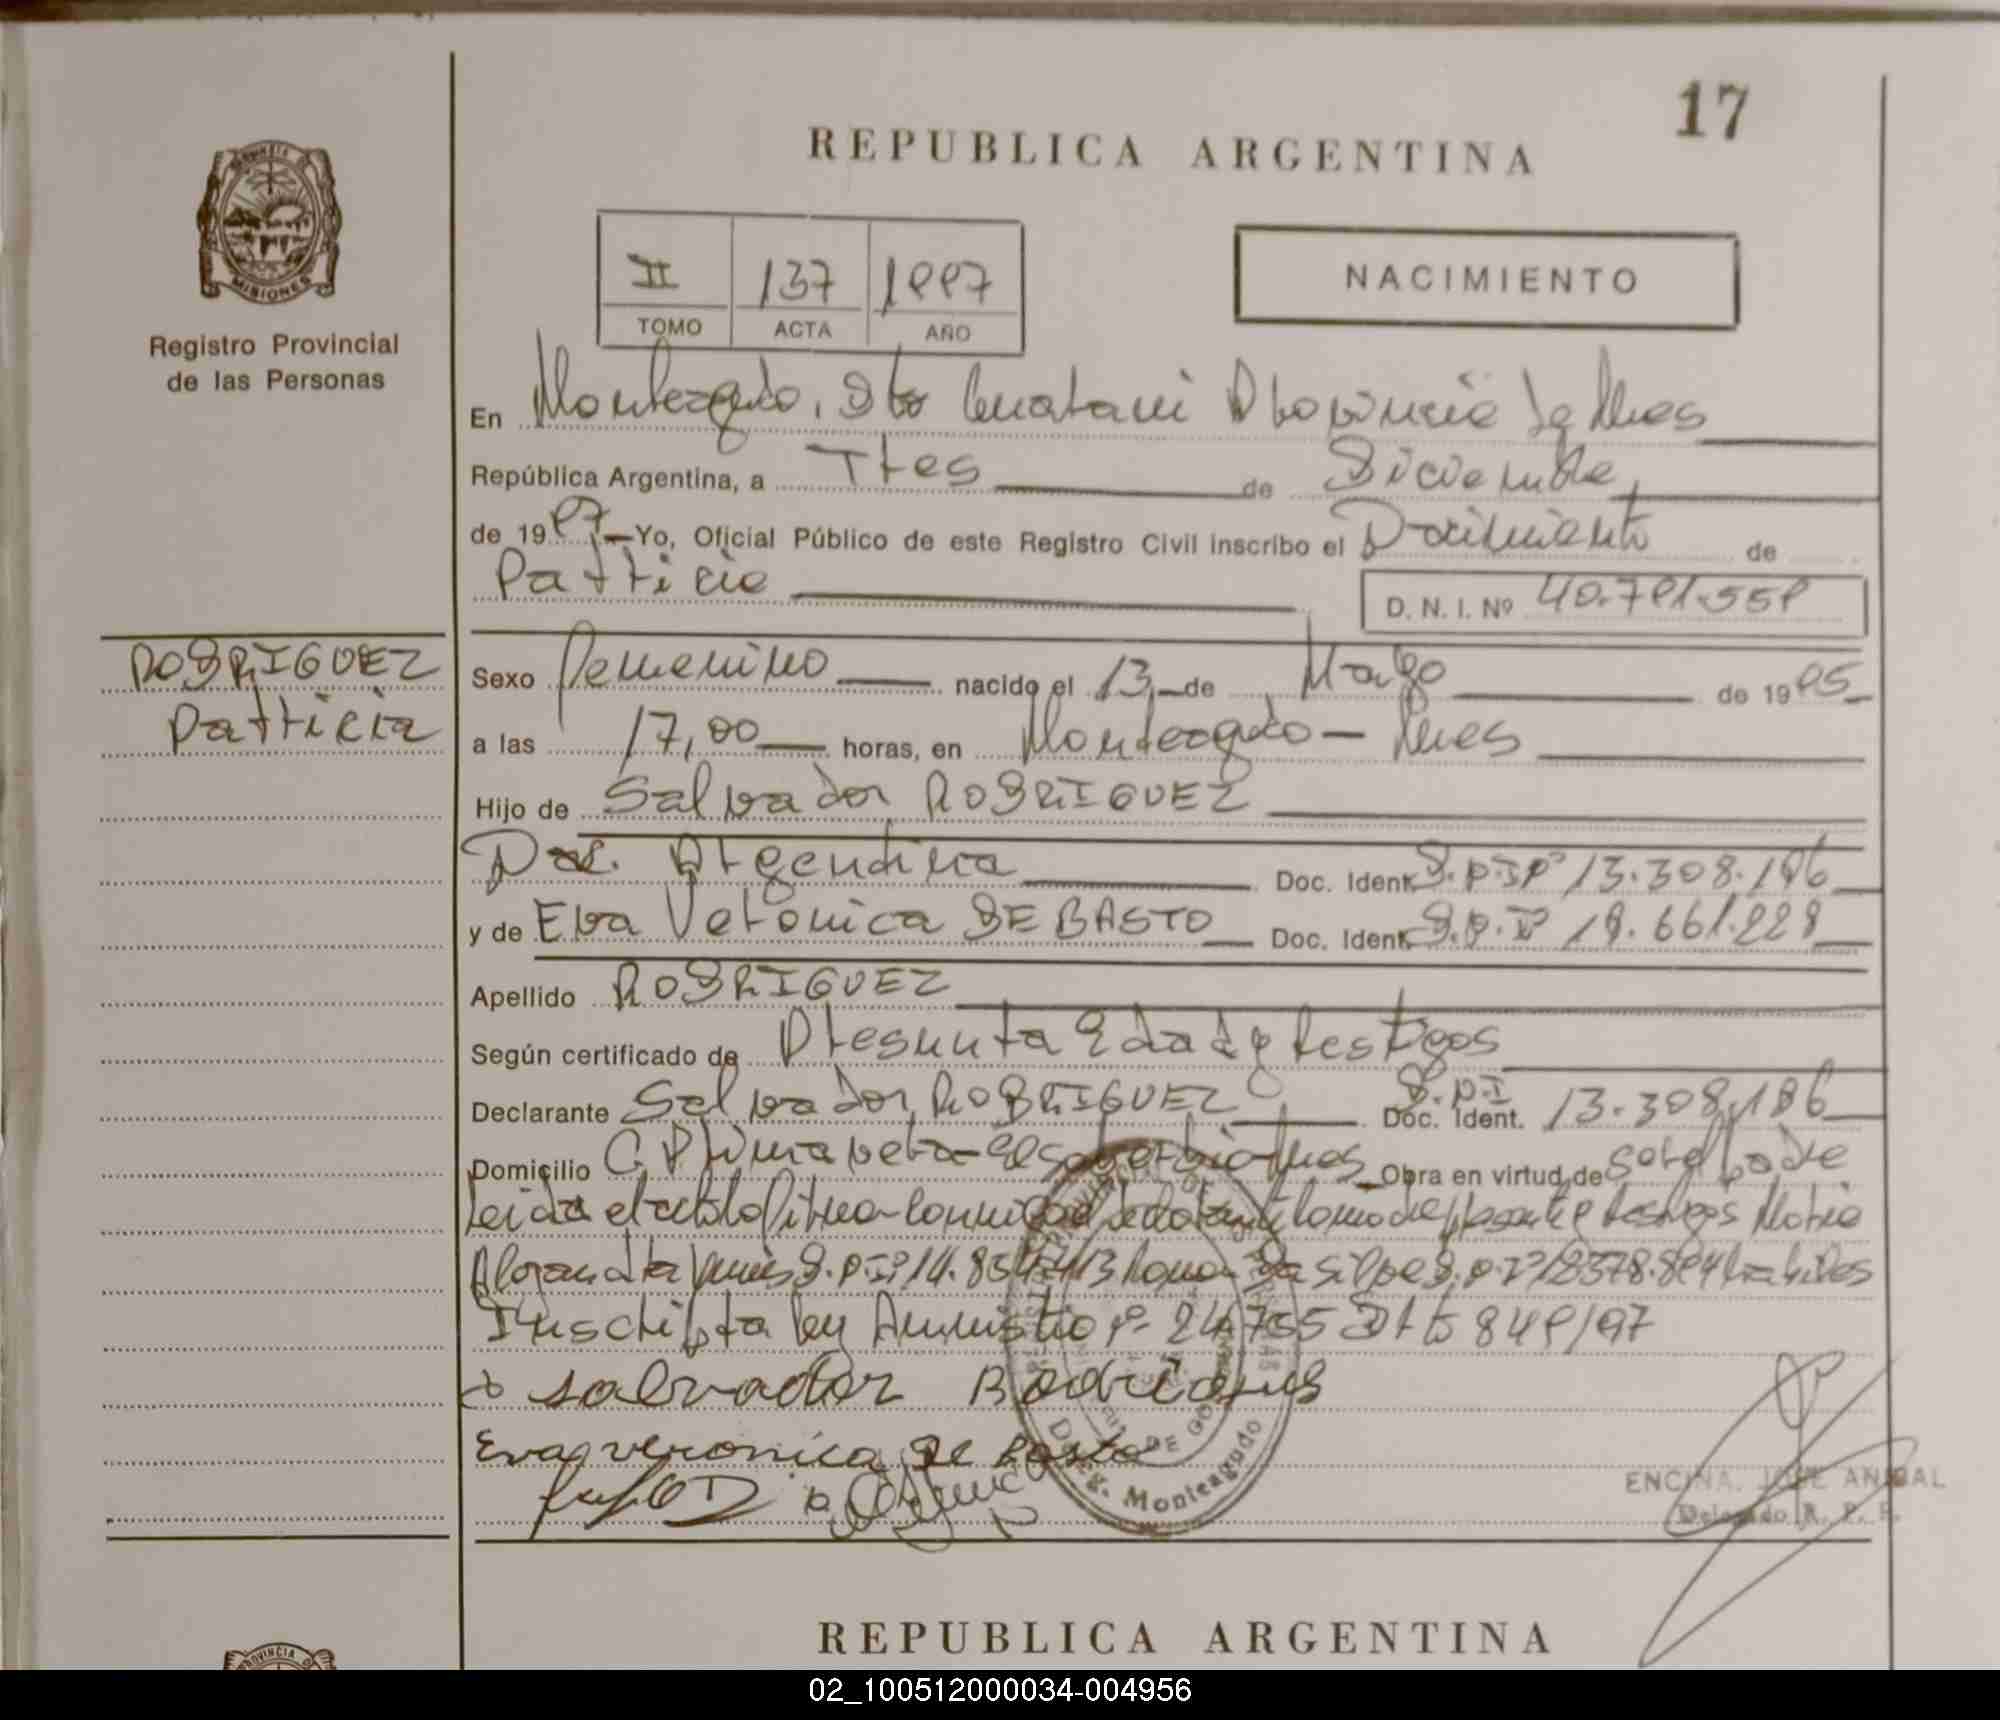 17
REPUBLICA ARGENTINA
PROVINCIA DE
MISIONES
Registro Provincial
de las Personas
II 137 1997
TOMO ACTA AÑO
NACIMIENTO
En Monteagudo, Dto Guaraní Provincia de Mnes
República Argentina, a Tres de Diciembre
de 1997 Yo, Oficial Público de este Registro Civil inscribo el Nacimiento de
Patricia
D. N. I. Nº 40.791.559
RODRIGUEZ
Patricia
Sexo Femenino nacido el 13 de Marzo de 1995
a las 17,00 horas, en Monteagudo - Mnes
Hijo de Salvador RODRIGUEZ
Nac. Argentina Doc. Ident. D.N.I Nº 13.308.196
y de Eva Veronica DE BASTO Doc. Ident. D.N.I 18.661.228
Apellido RODRIGUEZ
Según certificado de Presunta Edad y testigos
Declarante Salvador RODRIGUEZ D.N.I Doc. Ident. 13.308.196
Domicilio C. Primavera - El Soberbio - Mnes Obra en virtud de ser el Padre
Leida el acta la firman conmigo el declarante la madre presente y testigos Maria
Alejandra D.N.I Nº Da Silva D.N.I Nº
Inscripta Ley Amnistia Nº 24.755 Dto 849/97
Salvador Rodrigues
Eva veronica De Basto
Deleg. Monteagudo
ENCINA, JOSE ANIBAL
Delegado R. P. P.
REPUBLICA ARGENTINA
PROVINCIA D
02_100512000034-004956